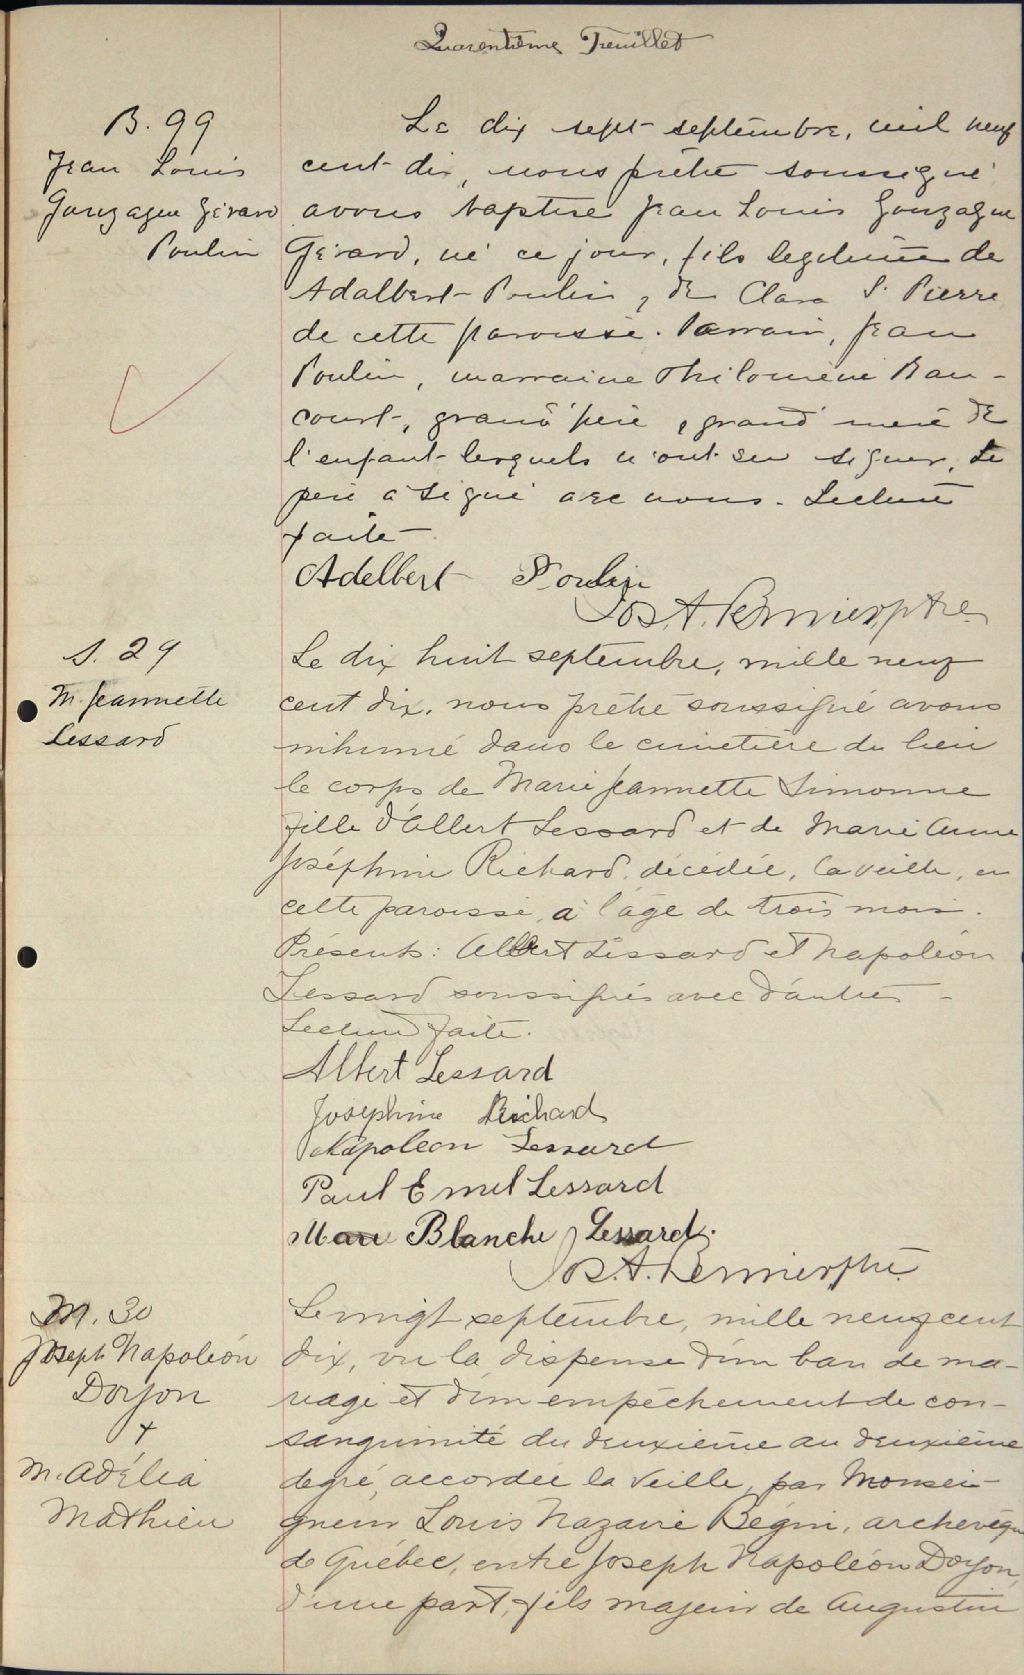 Quarentième Feuillet
B. 99
Jean Louis
Gonzague Gérard
Poulin
Le dix sept septembre, mil neuf
cent dix, nous prêtre soussigné
avons baptisé Jean Louis Gonzague
Gérard, né ce jour, fils légitime de
Adalbert Poulin, & de Clara St Pierre
de cette paroisse. Parrain, Jean
Poulin, marraine Philomène Ran-
court, grand'père & grand'mère de
l'enfant lesquels n'ont su signer. Le
père a signé avec nous. Lecture
faite
Adelbert Poulin
Jos. A. Bernier ptre
S. 29
M. Jeannette
Lessard
Le dix huit septembre, mille neuf
cent dix, nous prêtre soussigné avons
inhumé dans le cimetière du lieu
le corps de Marie Jeannette Simonne
fille d'Albert Lessard et de Marie Anne
Joséphine Richard, décédée, la veille, en
cette paroisse, à l'âge de trois mois.
Présents: Albert Lessard et Napoléon
Lessard soussignés avec d'autres -
Lecture faite.
Albert Lessard
Josephine Richard
Napoleon Lessard
Paul Emil Lessard
Marie Blanche Lessard.
Jos. A. Bernier ptre
M. 30
Joseph Napoléon
Doyon
+
M. Adélia
Mathieu
Le vingt septembre, mille neuf cent
dix, vu la dispense d'un ban de ma-
riage et d'un empêchement de con-
sanguinité du deuxième au deuxième
degré, accordée la veille, par Monsei-
gneur Louis Nazaire Bégin, archevêque
de Québec, entre Joseph Napoléon Doyon,
d'une part, fils majeur de Augustin